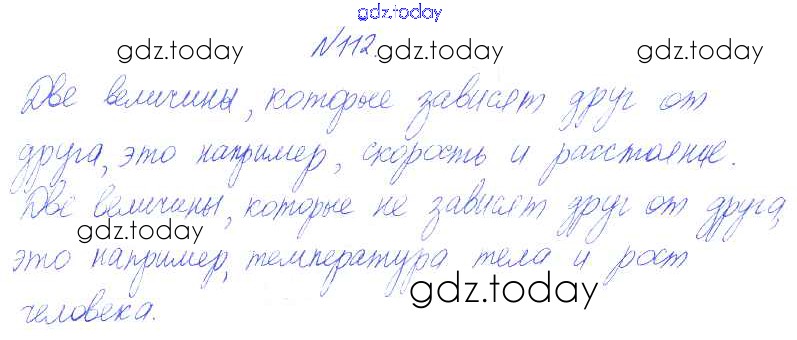 gdz.today
№112.
gdz.today gdz.today gdz.today
Две величины, которые зависят друг от
друга, это например, скорость и расстояние.
Две величины, которые не зависят друг от друга,
gdz.today
это например, температура тела и рост
gdz.today
человека.